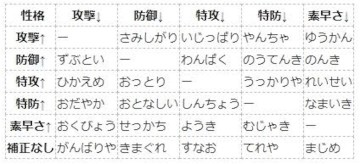 性格 攻撃↓ 防御↓ 特攻↓ 特防↓ 素早さ↓
攻撃↑ － さみしがり いじっぱり やんちゃ ゆうかん
防御↑ ずぶとい － わんぱく のうてんき のんき
特攻↑ ひかえめ おっとり － うっかりや れいせい
特防↑ おだやか おとなしい しんちょう － なまいき
素早さ↑ おくびょう せっかち ようき むじゃき －
補正なし がんばりや きまぐれ すなお てれや まじめ